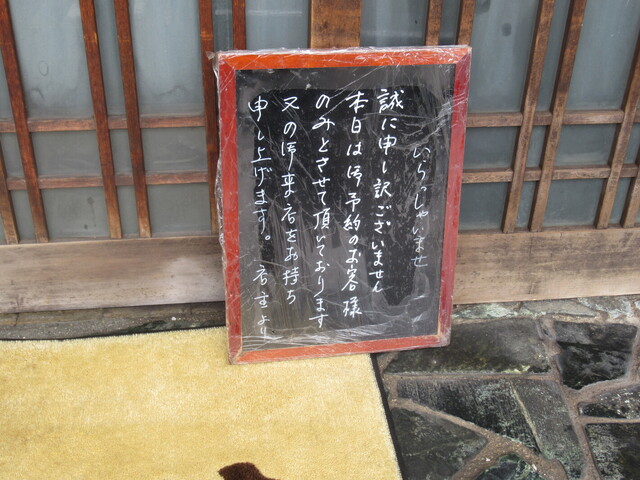 いらっしゃいませ
誠に申し訳ございません
本日は御予約のお客様
のみとさせて頂いております
又の御来店をお持ち
申し上げます。 店主より